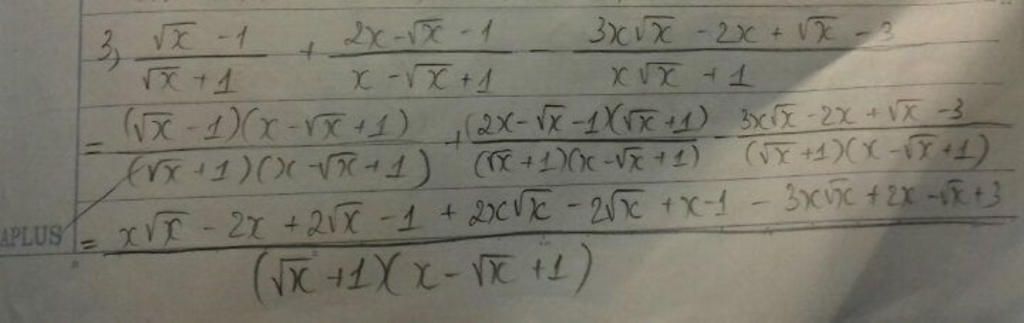 3, \frac{\sqrt{x} - 1}{\sqrt{x} + 1} + \frac{2x - \sqrt{x} - 1}{x - \sqrt{x} + 1} - \frac{3x\sqrt{x} - 2x + \sqrt{x} - 3}{x\sqrt{x} + 1}
= \frac{(\sqrt{x} - 1)(x - \sqrt{x} + 1)}{(\sqrt{x} + 1)(x - \sqrt{x} + 1)} + \frac{(2x - \sqrt{x} - 1)(\sqrt{x} + 1)}{(\sqrt{x} + 1)(x - \sqrt{x} + 1)} - \frac{3x\sqrt{x} - 2x + \sqrt{x} - 3}{(\sqrt{x} + 1)(x - \sqrt{x} + 1)}
APLUS
= \frac{x\sqrt{x} - 2x + 2\sqrt{x} - 1 + 2x\sqrt{x} - 2\sqrt{x} + x - 1 - 3x\sqrt{x} + 2x - \sqrt{x} + 3}{(\sqrt{x} + 1)(x - \sqrt{x} + 1)}